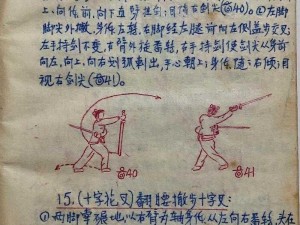 上,向体前,向下直劈挂剑;目视右剑尖(图40)。②左脚
脚尖外撇,身体左转,右脚经左腿前向左侧盖步交叉;
左手持剑不变,右臂外旋番转,右手持剑使剑尖从身前
向左,向上,向右划弧刺出,手心朝上;身体随之右倾;目
视右剑尖(图41)。
图40
图41
15.(十字花叉)翻腰撤步十字叉:
①两脚掌碾地,以右臂为轴
从左向右番转,头在